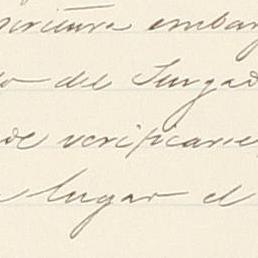 scritura embar
do del Juzgad
de verificarse
lugar el